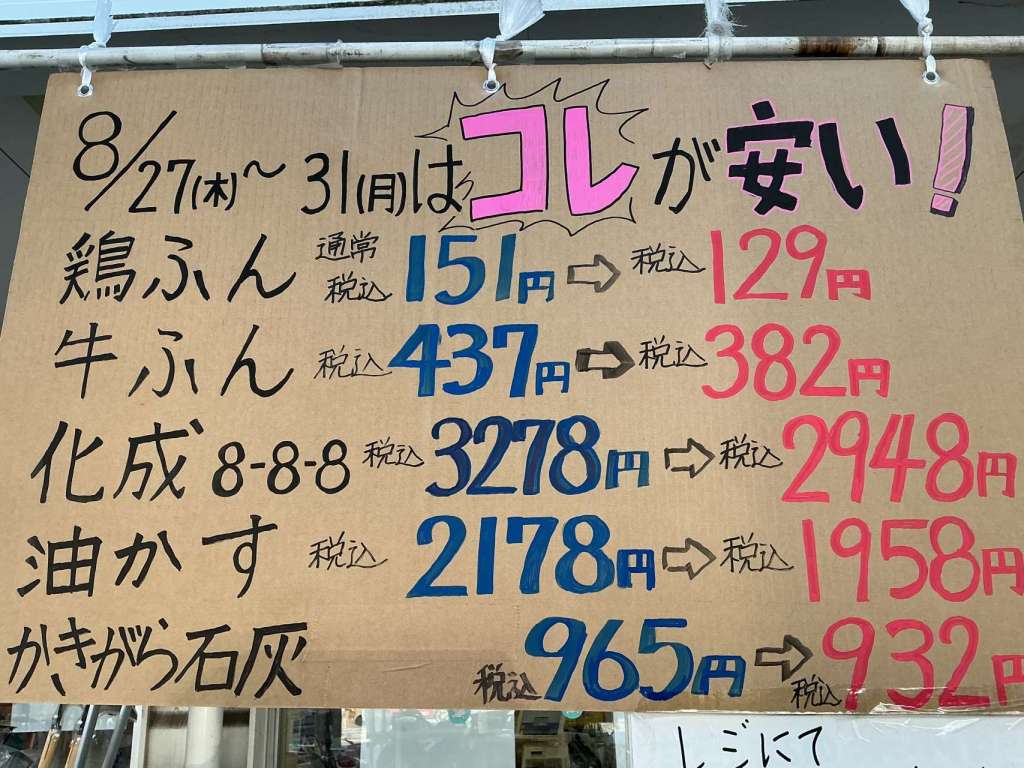 8/27(木)～31(月)はコレが安い!
鶏ふん 通常税込151円⇨税込129円
牛ふん 税込437円⇨税込382円
化成8-8-8 税込3278円⇨税込2948円
油かす 税込2178円⇨税込1958円
かきがら石灰 税込965円⇨税込932円
レジにて